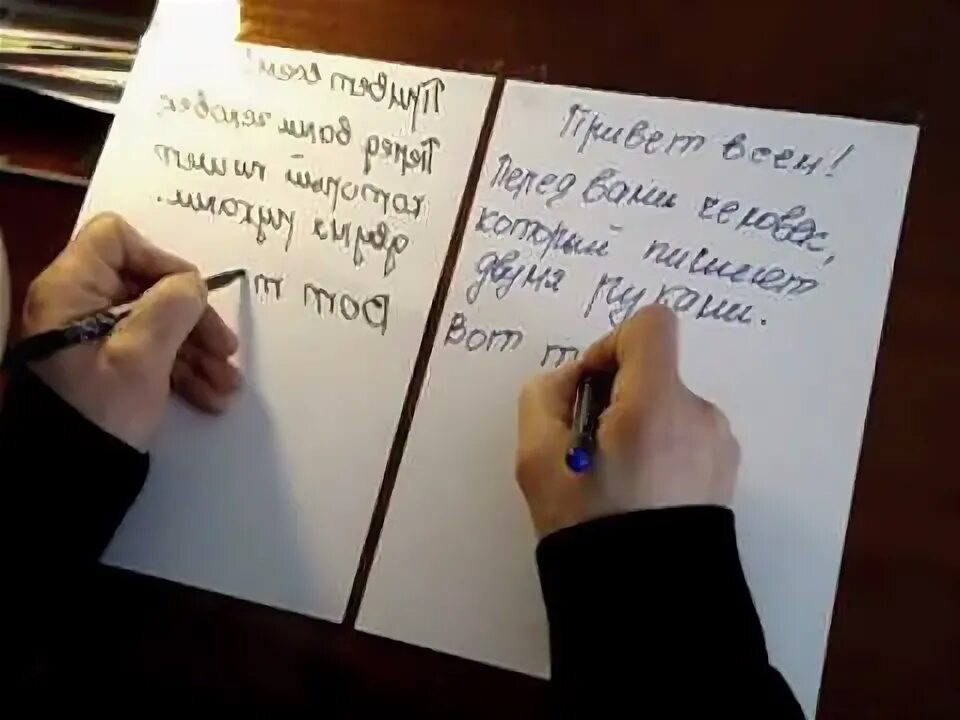 Привет всем!
Перед вами человек
который пишет
двумя руками.
Вот т
Привет всем!
Перед вами человек,
который пишет
двумя руками.
Вот т